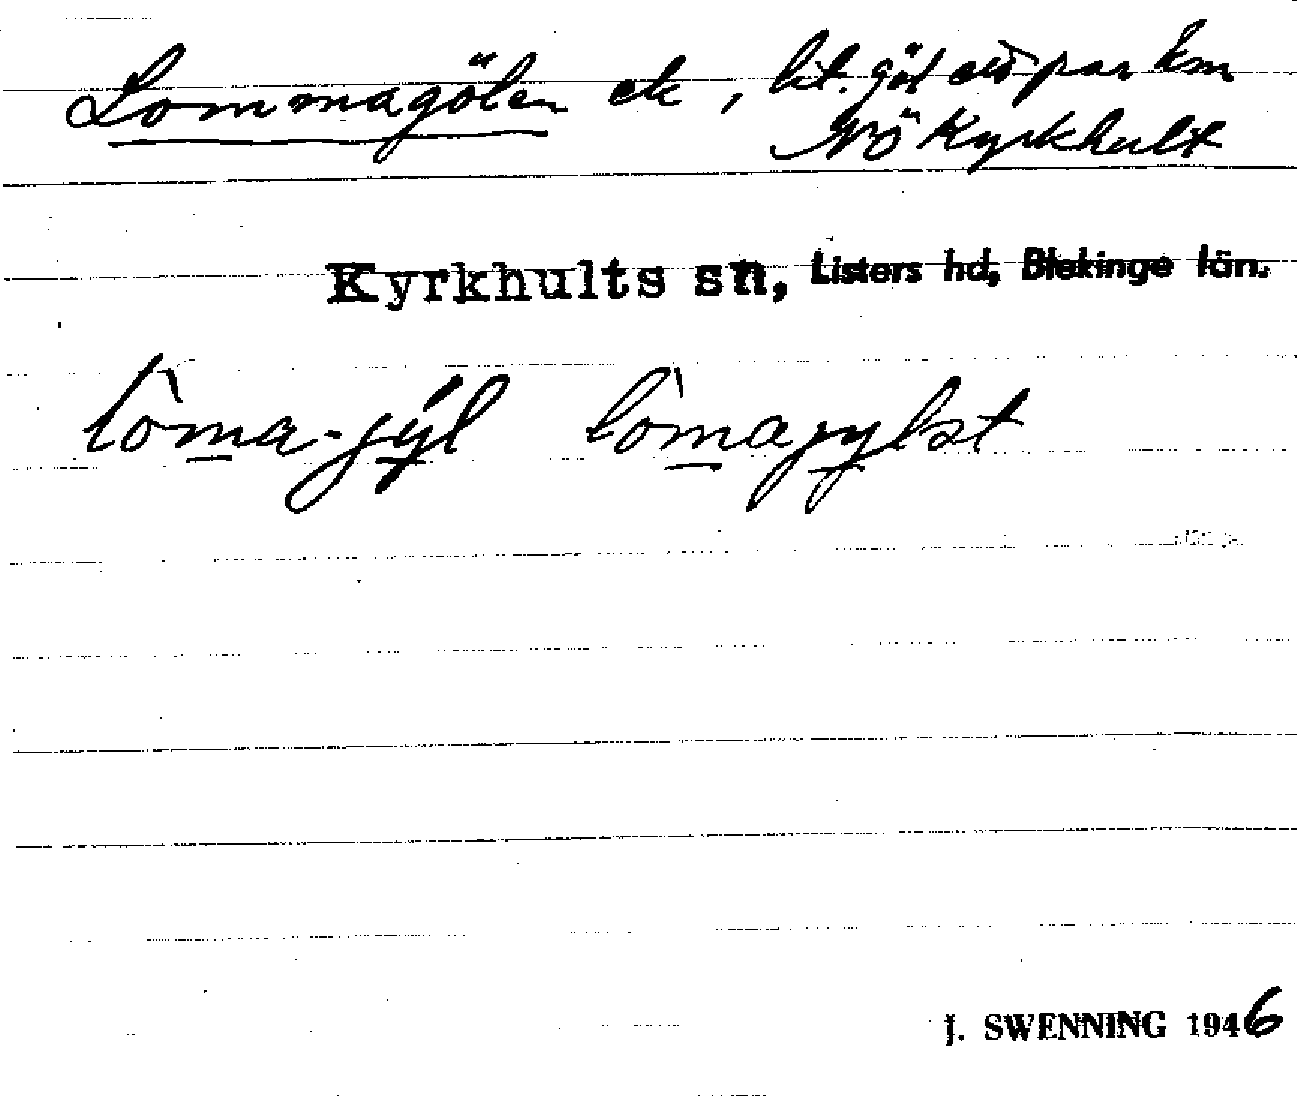 Lommagölen ek, lit. göl ett par km
NÖ Kyrkhult
Kyrkhults sn, Listers hd, Blekinge län.
lòma-jýl lòmajylət
J. SWENNING 1946